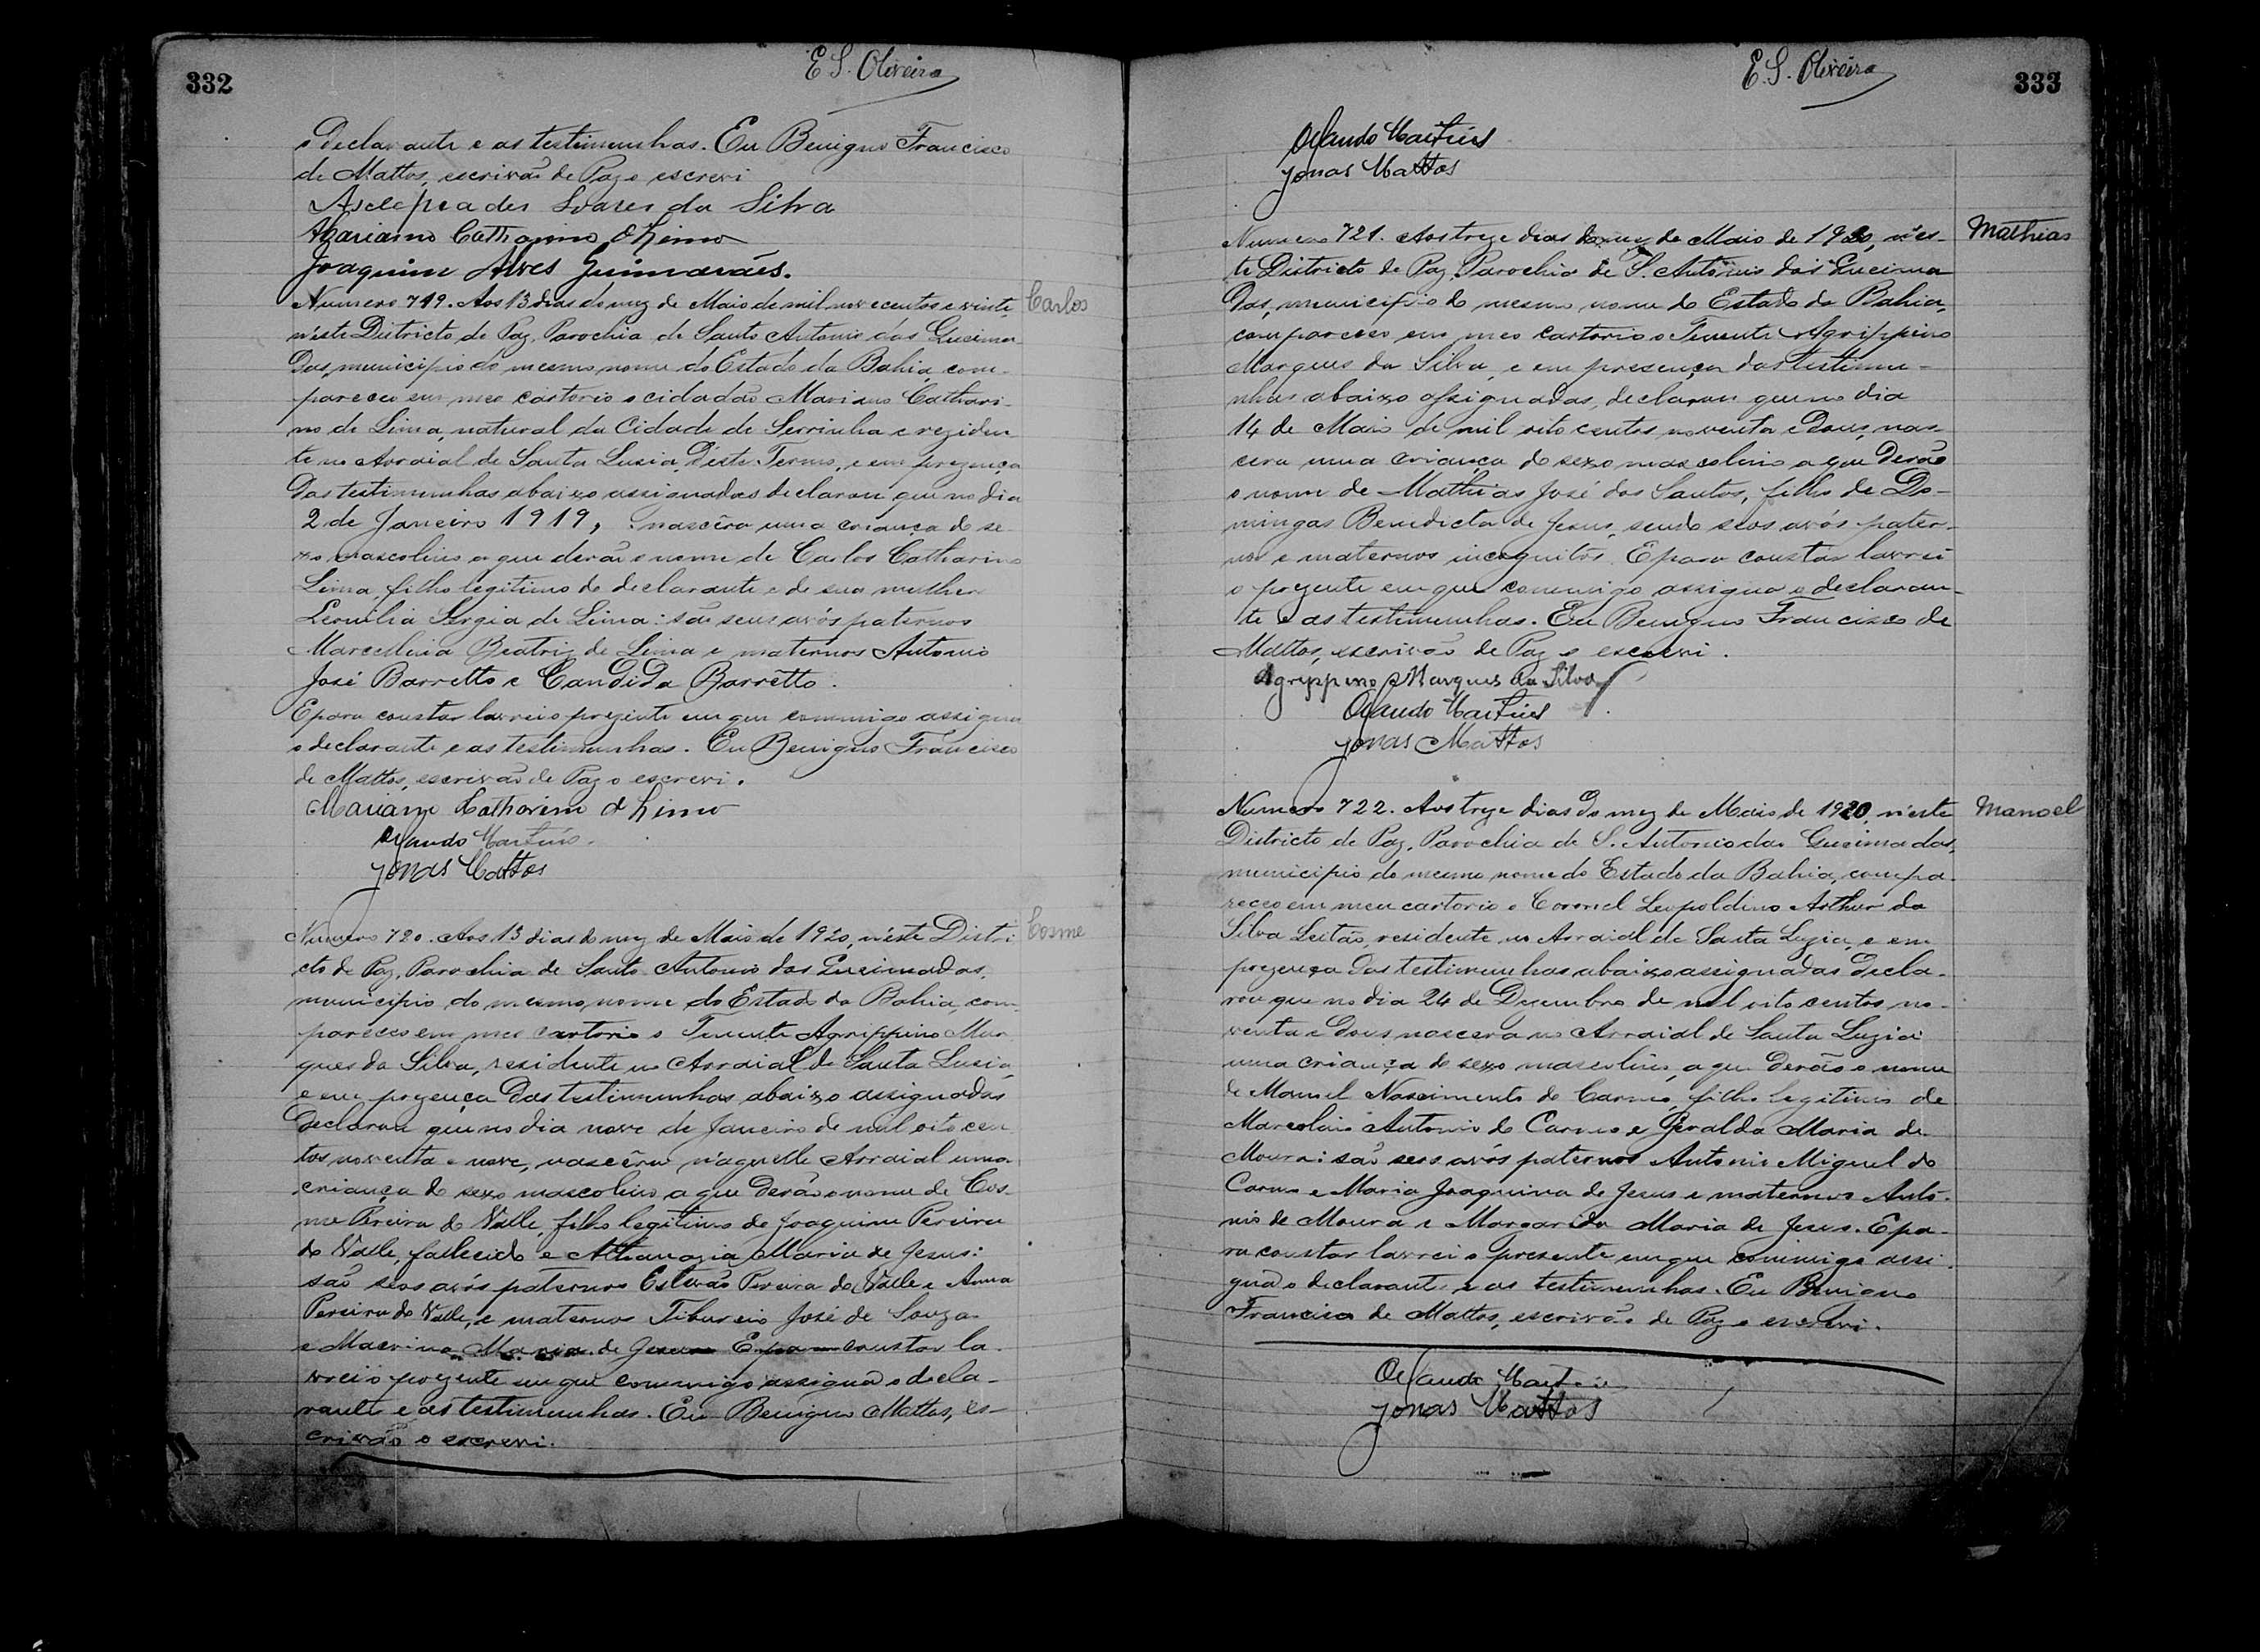 332
E. S. Oliveira
o declarante e as testimunhas. Eu Benigno Francisco
de Mattos, escrivão de Paz o escrevi
Asclepiades Soares da Silva
Mariano Catharino de Lima
Joaquim Alves Guimarães.
Carlos
Numero 719. Aos 13 dias do mez de Maio de mil novecentos e vinte,
n'este Districto de Paz, Parochia de Santo Antonio das Queima-
das, municipio do mesmo nome do Estado da Bahia, com-
pareceo em meo cartorio o cidadão Mariano Cathari-
no de Lima, natural da Cidade de Serrinha e reziden-
te no Arraial de Santa Lusia, deste Termo, e em prezença
das testimunhas abaixo assignadas declarou que no dia
2 de Janeiro 1919, nascêra uma criança do se-
xo mascolino a que derão o nome de Carlos Catharino
Lima, filho legitimo do declarante e de sua mulher
Sergia de Lima: são seus avós paternos
Marcellina Beatriz de Lima e maternos Antonio
José Barretto e Candida Barretto.
E para constar lavrei o prezente em que commigo assigna
o declarante e as testimunhas. Eu Benigno Francisco
de Mattos, escrivão de Paz o escrevi.
Mariano Catharino de Lima
Orlando Martins
Jonas Mattos
Cosme
Numero 720. Aos 13 dias do mez de Maio de 1920, n'este Distri-
cto de Paz, Parochia de Santo Antonio das Queimadas,
municipio do mesmo nome do Estado da Bahia, com-
pareceo em meo cartorio o Tenente Agrippino Mar-
ques da Silva, residente no Arraial de Santa Lusia,
e em prezença das testimunhas abaixo assignadas
declarou que no dia nove de Janeiro de mil oito cen-
tos noventa e nove, nascêra n'aquelle Arraial uma
criança do sexo mascolino a que derão o nome de Cos-
me Pereira do Valle, filho legitimo de Joaquim Pereira
do Valle, fallecido e Athanazia Maria de Jesus:
são seos avós paternos Estevão Pereira do Valle e Anna
Pereira do Valle, e maternos Tiburcio José de Souza
e Macrina Maria de Jesus. E para constar la-
vrei o prezente em que commigo assigna o decla-
rante e as testimunhas. Eu Benigno Mattos, es-
crivão o escrevi.
E. S. Oliveira
333
Orlando Martins
Jonas Mattos
Mathias
Numero 721. Aos treze dias do mez de Maio de 1920, n'es-
te Districto de Paz, Parochia de S. Antonio das Queima-
das, municipio do mesmo nome do Estado da Bahia,
compareceo em meo cartorio o Tenente Agrippino
Marques da Silva, e em presença das testimu-
nhas abaixo assignadas, declarou que no dia
14 de Maio de mil oito centos noventa e dous, nas-
cera uma criança do sexo mascolino a que derão
o nome de Mathias José dos Santos, filho de Do-
mingas Benedicta de Jesus, sendo seos avós pater-
nos e maternos incognitos. E para constar lavrei
o prezente em que commigo assigna o declaran-
te e as testimunhas. Eu Benigno Francisco de
Mattos, escrivão de Paz o escrevi.
Agrippino Marques da Silva
Orlando Martins
Jonas Mattos
Manoel
Numero 722. Aos treze dias do mez de Maio de 1920, n'este
Districto de Paz, Parochia de S. Antonio das Queimadas,
municipio do mesmo nome do Estado da Bahia, compa-
receo em meu cartorio o Coronel Leopoldino Arthur da
Silva Leitão, residente no Arraial de Santa Luzia, e em
prezença das testimunhas abaixo assignadas decla-
rou que no dia 24 de Dezembro de mil oito centos no-
venta e dous nascera no Arraial de Santa Luzia
uma criança do sexo mascolino, a que derão o nome
de Manoel Nascimento do Carmo, filho legitimo de
Marcolino Antonio do Carmo e Geralda Maria de
Moura: são seos avós paternos Antonio Miguel do
Carmo e Maria Joaquina de Jesus e maternos Anto-
nio de Moura e Margarida Maria de Jesus. E pa-
ra constar lavrei o presente em que commigo assi-
gna o declarante e as testimunhas. Eu Benigno
Francisco de Mattos, escrivão de Paz o escrevi.
Orlando Martins
Jonas Mattos